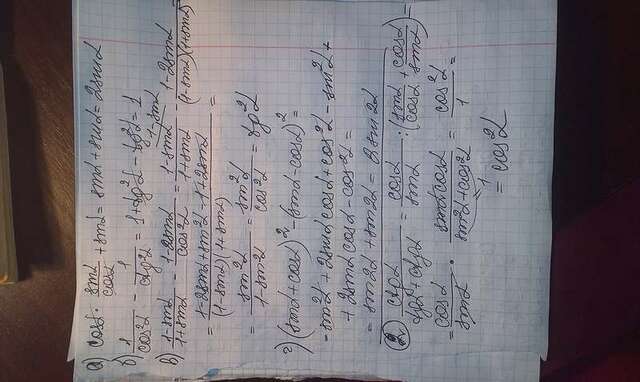 а) cosα · sinα/cosα + sinα = sinα + sinα = 2sinα
б) 1/cos²α − 1/ctg²α = 1 + tg²α − tg²α = 1
в) (1−sinα)/(1+sinα) − (1−2sinα)/cos²α = (1−sinα)/(1+sinα) − (1−2sinα)/((1−sinα)(1+sinα)) =
= (1−2sinα+sin²α−1+2sinα)/((1−sinα)(1+sinα)) =
= sin²α/(1−sin²α) = sin²α/cos²α = tg²α
г) (sinα+cosα)² − (sinα−cosα)² =
= sin²α + 2sinαcosα + cos²α − sin²α +
+ 2sinαcosα − cos²α =
= sin2α + sin2α = 2sin2α
2. ctgα/(tgα+ctgα) = cosα/sinα : (sinα/cosα + cosα/sinα) =
= cosα/sinα · sinαcosα/(sin²α+cos²α) = cos²α/1 =
1
= cos²α